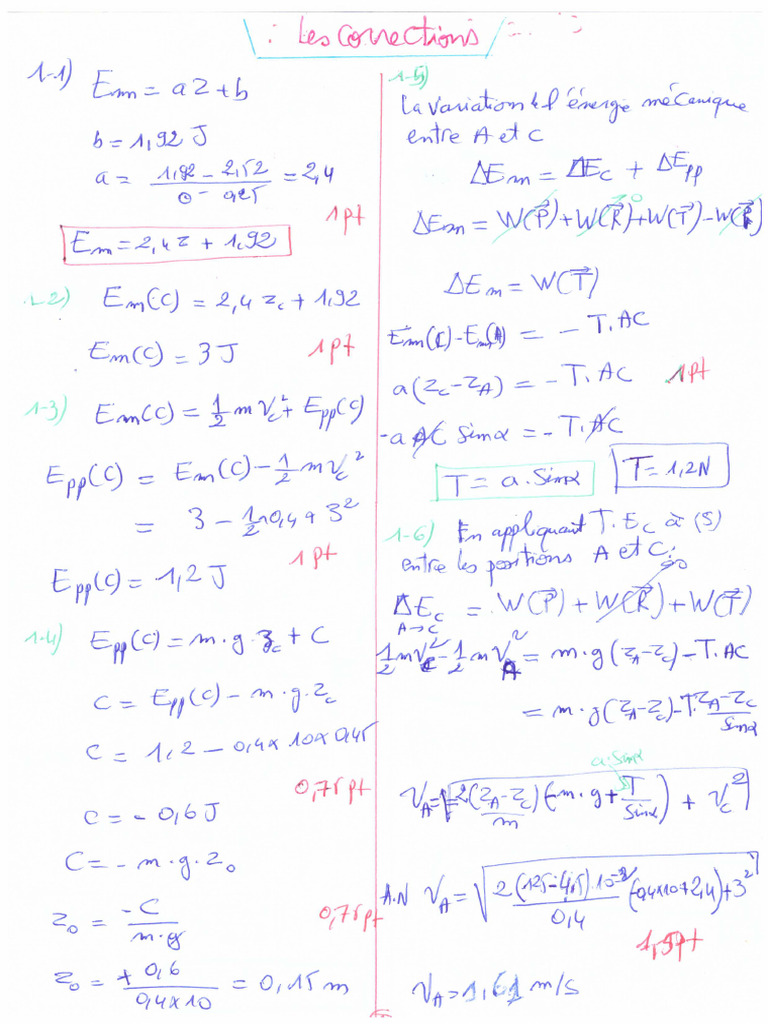 Les corrections
1-1) Em = aZ + b
b = 1,92 J
a = (1,92 - 2,52)/(0 - 0,25) = 2,4
1 pt
Em = 2,4z + 1,92
1-2) Em(C) = 2,4 zc + 1,92
Em(C) = 3 J 1 pt
1-3) Em(C) = 1/2 m Vc² + Epp(C)
Epp(C) = Em(C) - 1/2 m Vc²
= 3 - 1/2 × 0,4 × 3²
1 pt
Epp(C) = 1,2 J
1-4) Epp(C) = m·g·zc + C
C = Epp(C) - m·g·zc
C = 1,2 - 0,4 × 10 × 0,45
0,75 pt
C = - 0,6 J
C = - m·g·z₀
z₀ = -C/(m·g) 0,75 pt
z₀ = + 0,6/(0,4×10) = 0,15 m
1-5)
La variation de l'énergie mécanique
entre A et C
ΔEm = ΔEc + ΔEpp
ΔEm = W(P) + W(R) + W(T) - W(P)
ΔEm = W(T)
Em(C) - Em(A) = - T.AC
a(zc - zA) = - T.AC 1 pt
- a AC Sinα = - T.AC
T = a.Sinα T = 1,2N
1-6) En appliquant T.Ec à (S)
entre les positions A et C :
ΔEc A→C = W(P) + W(R) + W(T)
1/2 m Vc² - 1/2 m VA² = m·g(zA - zc) - T.AC
= m·g(zA - zc) - T·(zA - zc)/sinα
a.sinα
VA = √(2(zA - zc)/m (-m·g + T/sinα) + Vc²)
A.N VA = √(2(12,5 - 45).10⁻²/0,4 (-0,4×10 + 2,4) + 3²)
1,5pt
VA = 1,61 m/s